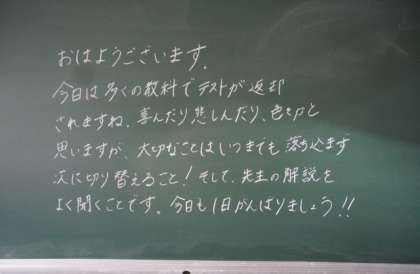 おはようございます。
今日は多くの教科でテストが返却
されますね。喜んだり悲しんだり、色々だと
思いますが、大切なことはいつまでも落ち込まず
次に切り替えること！そして、先生の解説を
よく聞くことです。今日も1日がんばりましょう!!